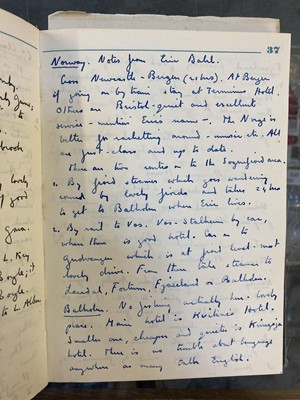 37
Norway. Notes from Eric Dahl.
Cross Newcastle - Bergen (21 hrs). At Bergen
if going on by train stay at Terminus Hotel.
Others are Bristol - quiet and excellent
service - mention Eric's name -. The Norge is
better for racketting around - music etc. All
are first-class and up to date.
There are two routes on to the Sognefjord area.
1. By fjord steamer which goes wandering
round by lovely fjords and takes 24 hrs
to get to Balholm where Eric lives.
2. By rail to Voss. Voss-Stalheim by car,
where there is good hotel. Car on to
Gudvangen which is at fjord level - most
lovely drive. From there take steamer to
Laerdal, Fortun, Fjaerland or Balholm.
Balholm. No fishing actually here. Lovely
place. Main hotel is Kvikne's Hotel.
Smaller one, cheaper and quieter is
hotel. There is no trouble about language
anywhere as many talk English.
lovely
good
L. Key
Boyle, it
Boyle.
to L.